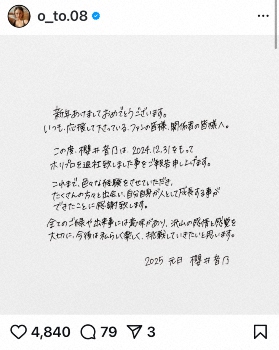 o_to.08
新年あけましておめでとうございます。
いつも応援して下さっている、ファンの皆様、関係者の皆様へ。
この度、櫻井音乃は、2024.12.31をもって
ホリプロを退社致しました事をご報告申し上げます。
これまで、色々な経験をさせていただき、
たくさんの方々と出会い、自分自身が人として成長する事が
できたことに感謝致します。
全てのご縁や出来事には意味があり、沢山の感情と感覚を
大切に、今後は私らしく楽しく、挑戦していきたいと思います。
2025 元日 櫻井音乃
4,840 79 3